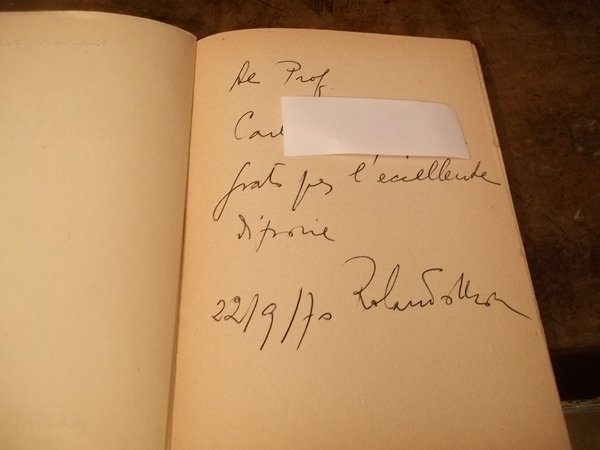 Al Prof.
Carl
grato per l'eccellente
22/9/70 Rolando